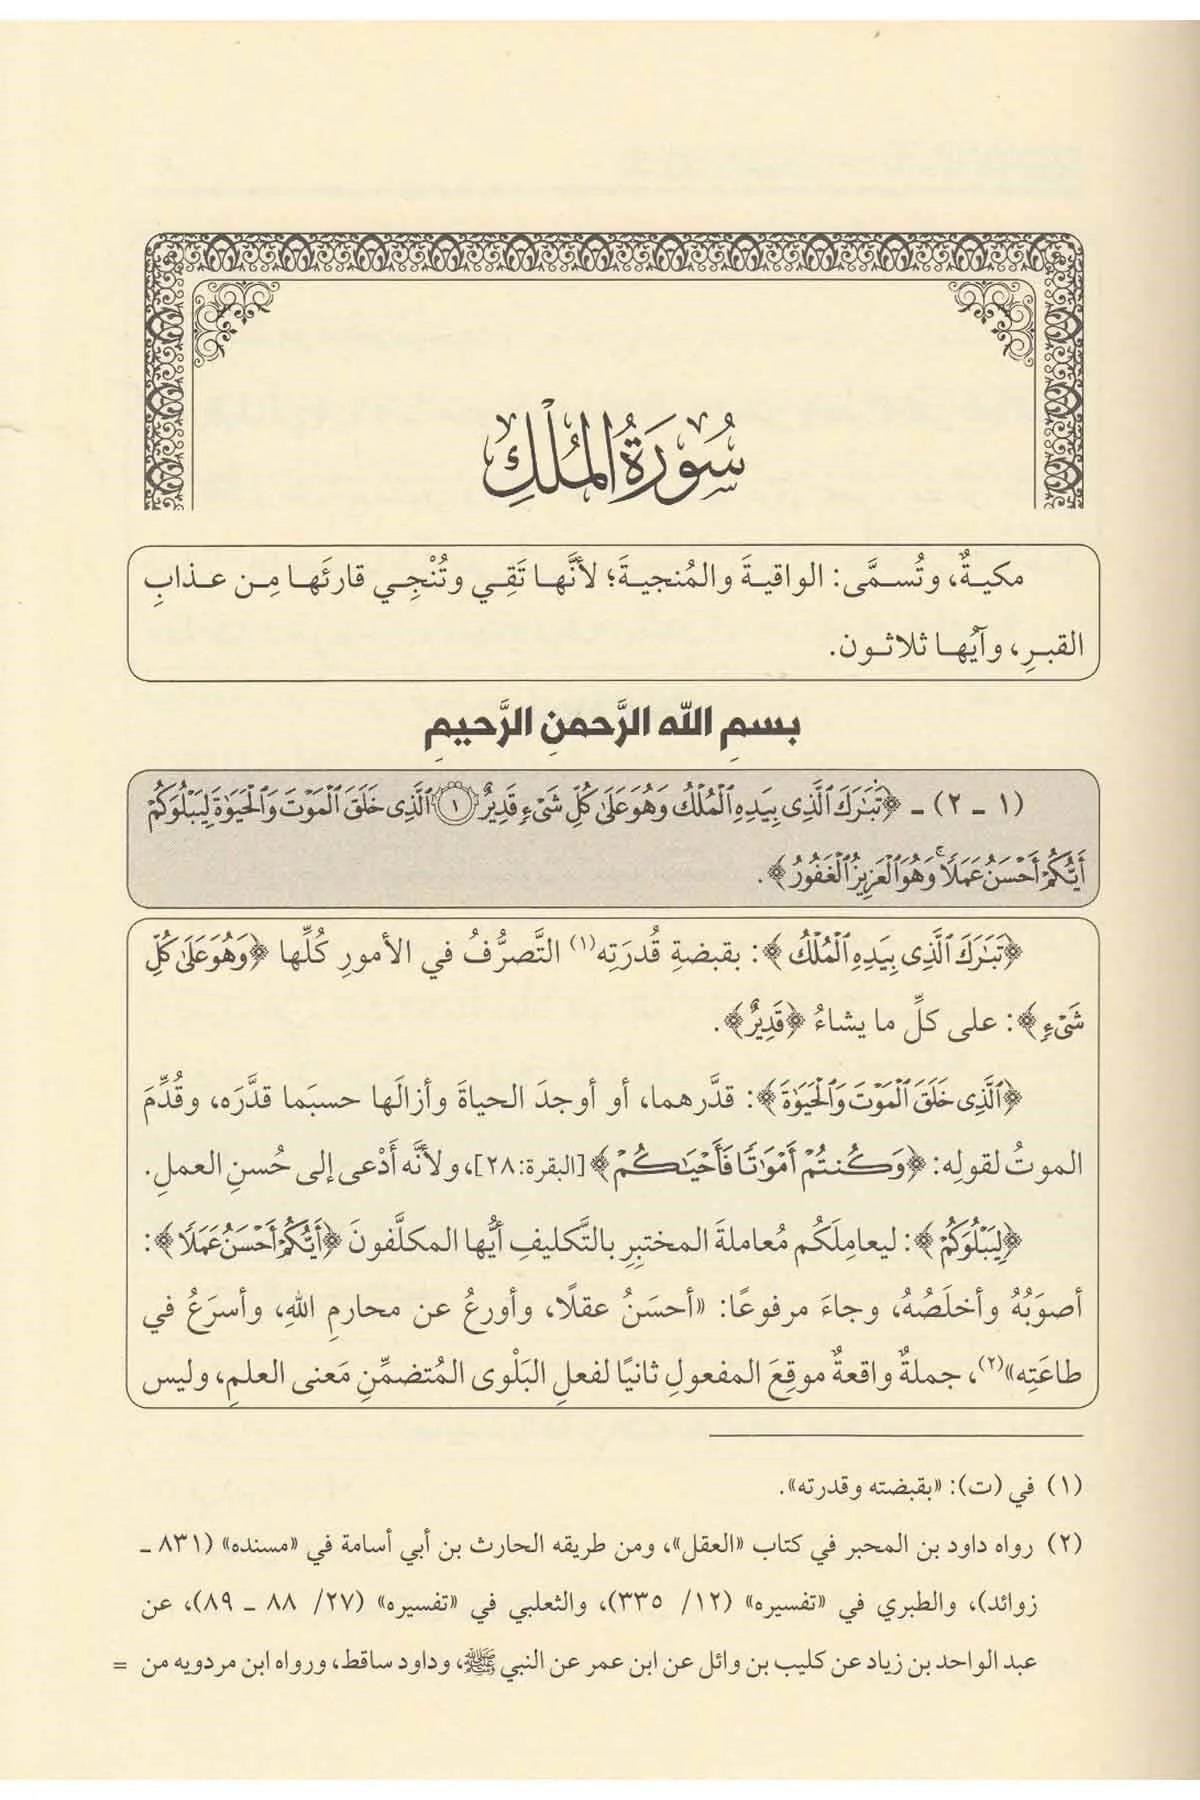 سُورَةُ المُلْكِ
مكيةٌ، وتُسمَّى: الواقيةَ والمُنجيةَ؛ لأنَّها تَقِي وتُنْجِي قارئَها مِن عذابِ
القبرِ، وآيُها ثلاثون.
بسمِ الله الرَّحمنِ الرَّحيمِ
(١ ـ ٢) ـ ﴿تَبَٰرَكَ ٱلَّذِى بِيَدِهِ ٱلْمُلْكُ وَهُوَ عَلَىٰ كُلِّ شَىْءٍ قَدِيرٌ ١ ٱلَّذِى خَلَقَ ٱلْمَوْتَ وَٱلْحَيَوٰةَ لِيَبْلُوَكُمْ
أَيُّكُمْ أَحْسَنُ عَمَلًا ۚ وَهُوَ ٱلْعَزِيزُ ٱلْغَفُورُ﴾.
﴿تَبَٰرَكَ ٱلَّذِى بِيَدِهِ ٱلْمُلْكُ﴾: بقبضةِ قُدرَتِه(١) التَّصرُّفُ في الأمورِ كُلِّها ﴿وَهُوَ عَلَىٰ كُلِّ
شَىْءٍ﴾: على كلِّ ما يشاءُ ﴿قَدِيرٌ﴾.
﴿ٱلَّذِى خَلَقَ ٱلْمَوْتَ وَٱلْحَيَوٰةَ﴾: قدَّرهما، أو أوجدَ الحياةَ وأزالَها حسبَما قدَّرَه، وقُدِّمَ
الموتُ لقولِه: ﴿وَكُنتُمْ أَمْوَٰتًا فَأَحْيَٰكُمْ﴾ [البقرة: ٢٨]، ولأنَّه أَدْعى إلى حُسنِ العملِ.
﴿لِيَبْلُوَكُمْ﴾: ليعامِلَكُم مُعاملةَ المختبِرِ بالتَّكليفِ أيُّها المكلَّفونَ ﴿أَيُّكُمْ أَحْسَنُ عَمَلًا﴾:
أصوَبُهُ وأخلَصُهُ، وجاءَ مرفوعًا: «أحسَنُ عقلًا، وأورعُ عن محارمِ اللهِ، وأسرَعُ في
طاعَتِه»(٢)، جملةٌ واقعةٌ موقِعَ المفعولِ ثانيًا لفعلِ البَلْوى المُتضمِّنِ مَعنى العلمِ، وليس
(١) في (ت): «بقبضته وقدرته».
(٢) رواه داود بن المحبر في كتاب «العقل»، ومن طريقه الحارث بن أبي أسامة في «مسنده» (٨٣١ ـ
زوائد)، والطبري في «تفسيره» (١٢/ ٣٣٥)، والثعلبي في «تفسيره» (٢٧/ ٨٨ ـ ٨٩)، عن
عبد الواحد بن زياد عن كليب بن وائل عن ابن عمر عن النبي ﷺ، وداود ساقط، ورواه ابن مردويه من =